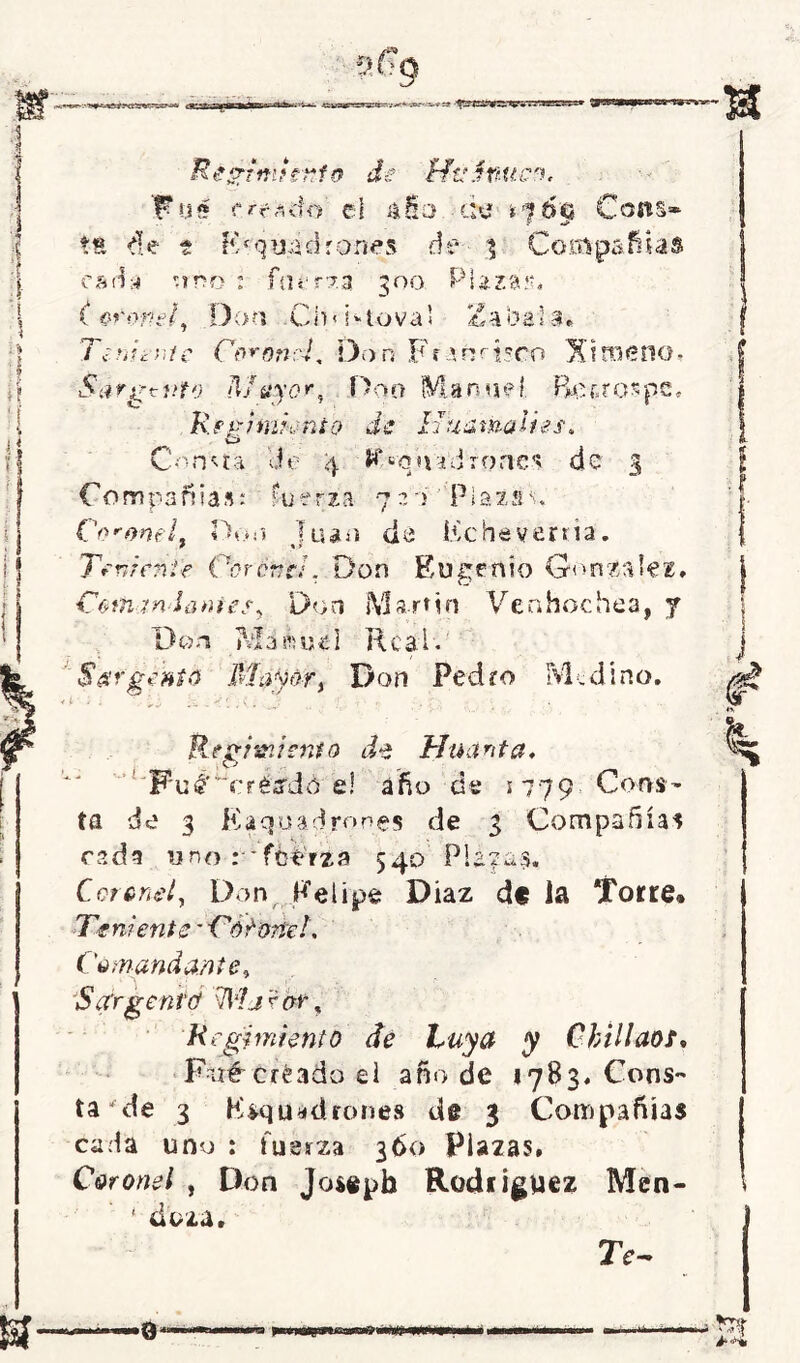 269
Regimiento de Huánuco.
Fué creado el año de 1769 Cons-
ta de 2 Esquadrones de 3 Compañias
cada uno : fuerza 300 Plazas.
Coronel, Don Christoval Zabala.
Teniente Coronel, Don Francisco Ximeno.
Sargento Mayor, Don Manuel Berrospe.
Regimiento de Huamalies.
Consta de 4 Esquadrones de 3
Compañias: fuerza 720 Plazas.
Coronel, Don Juan de Echeverria.
Teniente Coronel, Don Eugenio Gonzalez.
Comandantes, Don Martin Venhochea, y
Don Manuel Real.
Sargento Mayor, Don Pedro Medino.
Regimiento de Huanta.
Fué creádó el año de 1779 Cons-
ta de 3 Esquadrones de 3 Compañías
cada uno : fuerza 540 Plazas.
Coronel, Don Felipe Diaz de la Torre.
Teniente Coronel,
Comandante,
Sargento Mayor,
Regimiento de Luya y Chillaos.
Fué creado el año de 1783. Cons-
ta de 3 Esquadrones de 3 Compañias
cada uno : fuerza 360 Plazas.
Coronel , Don Joseph Rodriguez Men-
doza.
Te-